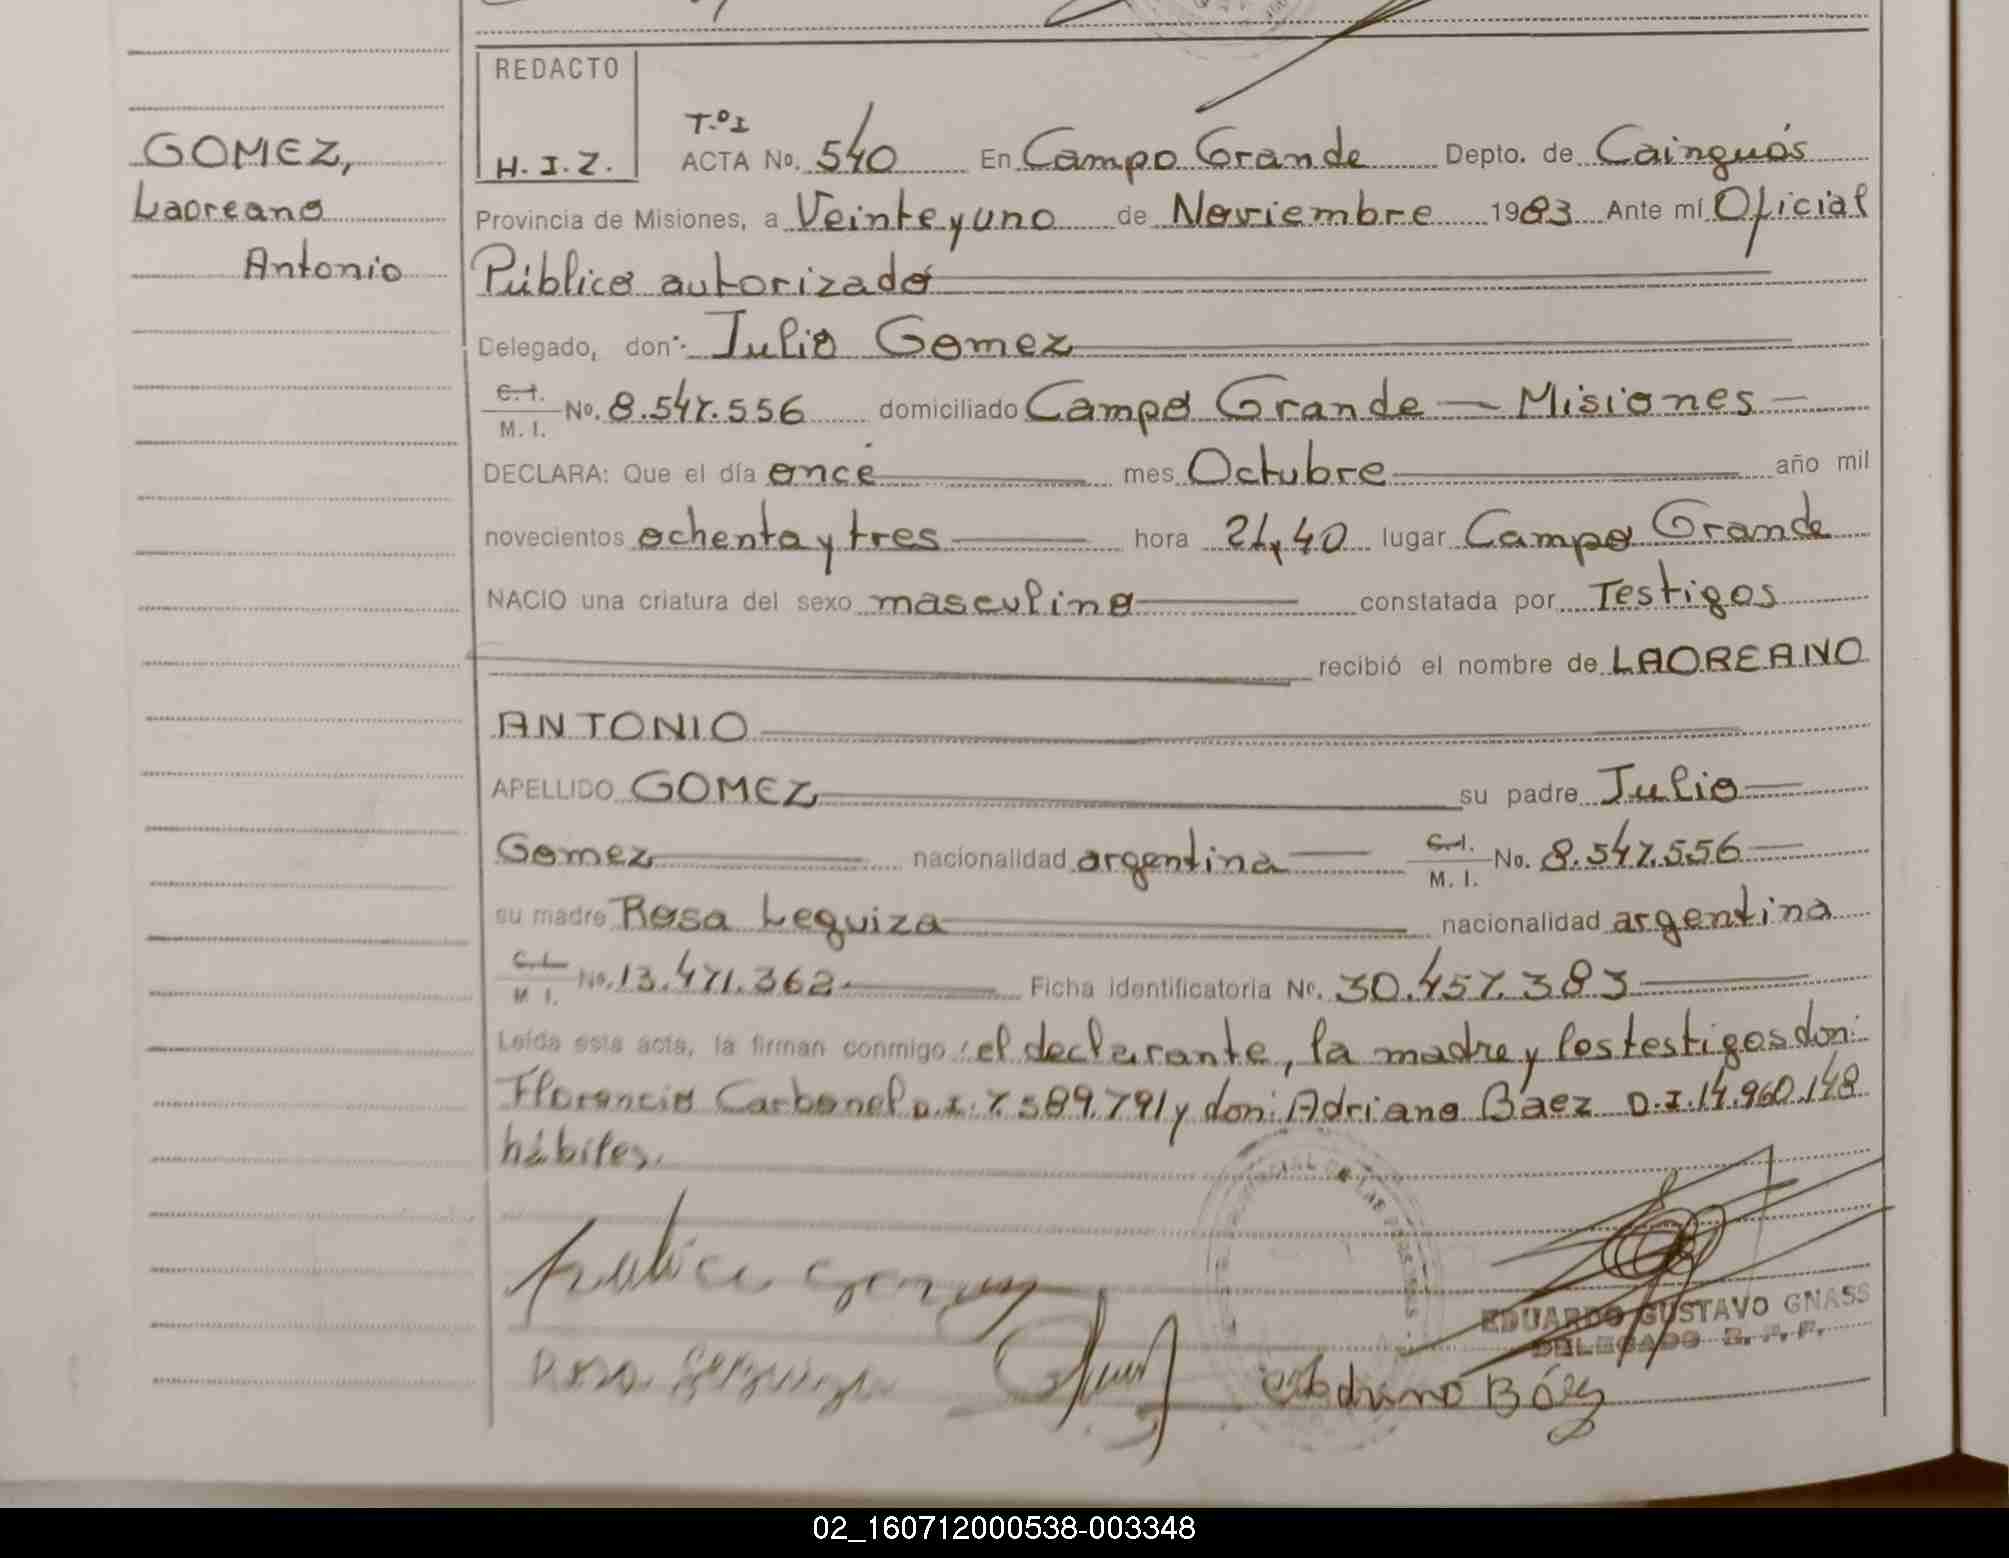 REDACTO
H.I.Z.
GOMEZ,
Laoreano
Antonio
T.º I
ACTA No. 540 En Campo Grande Depto. de Cainguás
Provincia de Misiones, a Veinte y uno de Noviembre 1983 Ante mí Oficial
Público autorizado
Delegado, don: Julio Gomez
C.I. M. I. No. 8.547.556 domiciliado Campo Grande — Misiones —
DECLARA: Que el día once mes Octubre año mil
novecientos ochenta y tres hora 21,40 lugar Campo Grande
NACIO una criatura del sexo masculino constatada por Testigos
recibió el nombre de LAOREANO
ANTONIO
APELLIDO GOMEZ su padre Julio
Gomez nacionalidad argentina C.I. M. I. No. 8.547.556
su madre Rosa Leguiza nacionalidad argentina
C.I. M I. No. 13.471.362 Ficha identificatoria No. 30.457.383
Leída esta acta, la firman conmigo: el declarante, la madre y los testigos don:
Florencio Carbonel D.I. 7.589.791 y don: Adriano Baez D.I. 14.960.148
hábiles.
EDUARDO GUSTAVO GNASS
DELEGADO
Rosa Leguiza
Adriano Báez
02_160712000538-003348